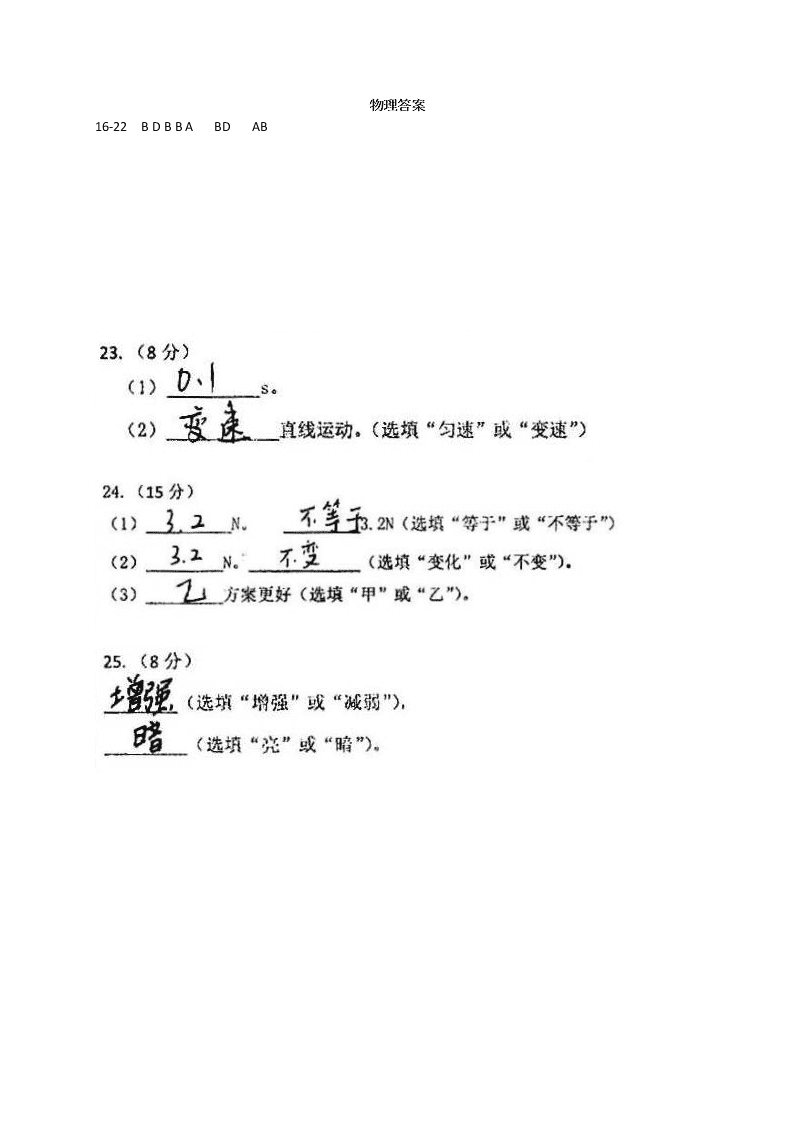 物理答案
16-22 B D B B A BD AB
23.（8 分）
（1）0.1s。
（2）变速直线运动。（选填“匀速”或“变速”）
24.（15 分）
（1）3.2N。 不等于3.2N（选填“等于”或“不等于”）
（2）3.2N。不变（选填“变化”或“不变”）。
（3）乙方案更好（选填“甲”或“乙”）。
25.（8 分）
增强（选填“增强”或“减弱”），
暗（选填“亮”或“暗”）。